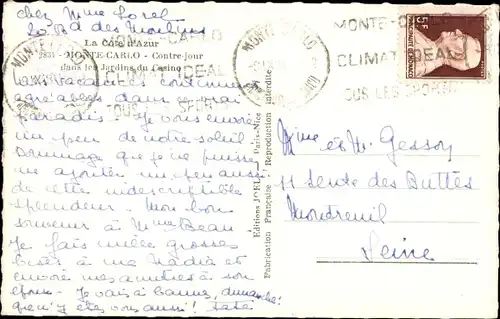 chez Mme Lorel
20 Bd des Moulins
La Côte d'Azur
MONTE-CARLO - Contre-jour
dans les Jardins du Casino
MONTE-CARLO
CLIMAT IDEAL
TOUS LES SPORTS
5F
Les vacances continuent
agréables dans ce vrai
paradis. Je vous envoie
un peu de notre soleil.
Dommage que je ne puisse
y ajouter un peu aussi
de cette indescriptible
splendeur. Mon bon
souvenir à Mme Beau
Je fais mille grosses
bises à ma Nadia et
envoie mes amitiés à son
époux. Je vais à Cannes, dimanche!
que n'y êtes vous aussi! Tata
Editions Paris-Nice
Fabrication Française Reproduction interdite
Mme et M. Gessoy
11 sente des Buttes
Montreuil
Seine